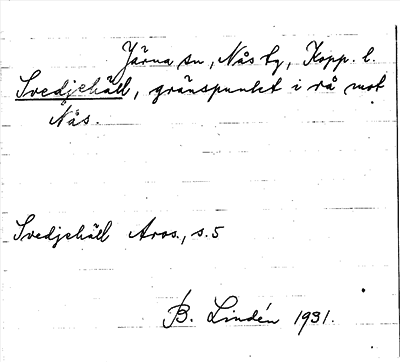 Järna sn, Nås tg, Kopp. l.
Svedjehäll, gränspunkt i rå mot
Nås.
Svedjehäll Aros., s. 5
B. Lindén 1931.